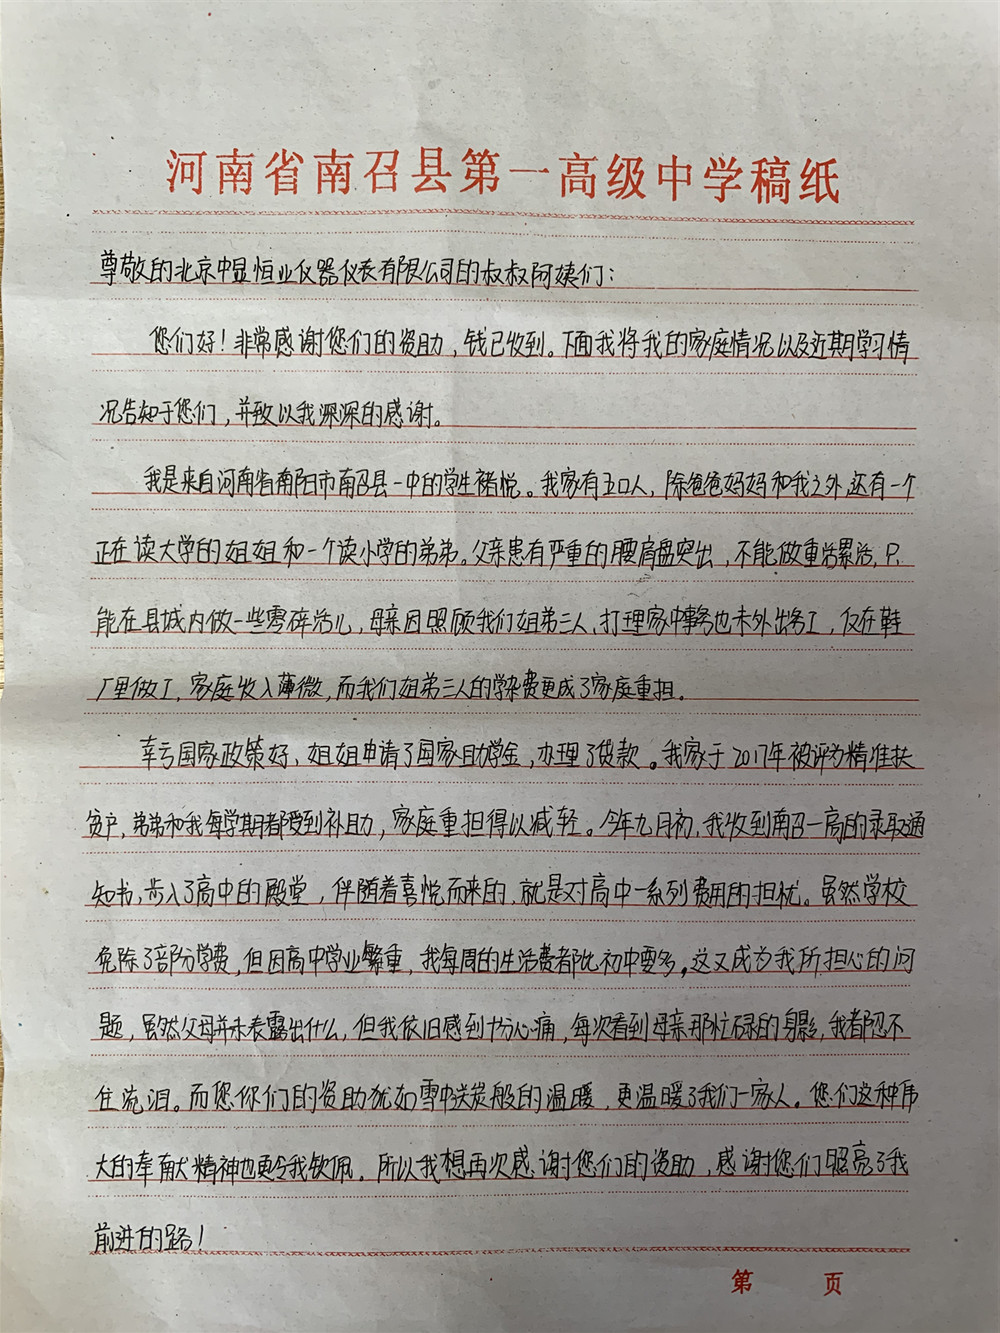 河南省南召县第一高级中学稿纸
尊敬的北京中显恒业仪器仪表有限公司的叔叔阿姨们：
您们好！非常感谢您们的资助，钱已收到。下面我将我的家庭情况以及近期学习情
况告知于您们，并致以我深深的感谢。
我是来自河南省南阳市南召县一中的学生褚悦。我家有五口人，除爸爸妈妈和我之外还有一个
正在读大学的姐姐和一个读小学的弟弟。父亲患有严重的腰肩盘突出，不能做重活累活，只
能在县城内做一些零碎活儿，母亲因照顾我们姐弟三人、打理家中事务也未外出务工，仅在鞋
厂里做工，家庭收入薄微，而我们姐弟三人的学杂费更成了家庭重担。
幸亏国家政策好，姐姐申请了国家助学金，办理了贷款。我家于2017年被评为精准扶
贫户，弟弟和我每学期都受到补助，家庭重担得以减轻。今年九月初，我收到南召一高的录取通
知书，步入了高中的殿堂，伴随着喜悦而来的，就是对高中一系列费用的担忧。虽然学校
免除了部分学费，但因高中学业繁重，我每周的生活费都比初中要多，这又成为我所担心的问
题，虽然父母并未表露出什么，但我依旧感到十分心痛，每次看到母亲那忙碌的身影，我都忍不
住流泪。而您你们的资助犹如雪中送炭般的温暖，更温暖了我们一家人。您们这种伟
大的奉献精神也更令我钦佩。所以我想再次感谢您们的资助，感谢您们照亮了我
前进的路！
第 页